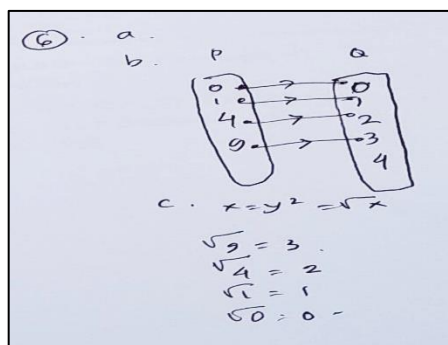 6. a.
b. P Q
0 0
1 1
4 2
9 3
4
c. x = y² = √x
√9 = 3.
√4 = 2
√1 = 1
√0 = 0 -